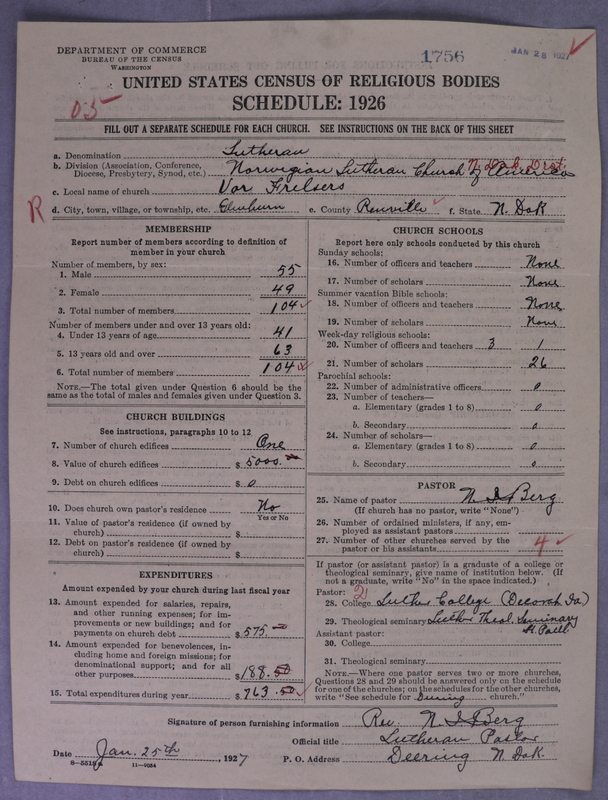 DEPARTMENT OF COMMERCE
BUREAU OF THE CENSUS
WASHINGTON
1756
JAN 28 1927
UNITED STATES CENSUS OF RELIGIOUS BODIES
SCHEDULE: 1926
05
FILL OUT A SEPARATE SCHEDULE FOR EACH CHURCH. SEE INSTRUCTIONS ON THE BACK OF THIS SHEET
a. Denomination Lutheran
b. Division (Association, Conference, Diocese, Presbytery, Synod, etc.) Norwegian Lutheran Church of America N. Dak. Dist.
c. Local name of church Vor Frelsers
R d. City, town, village, or township, etc. e. County Renville f. State N. Dak
MEMBERSHIP
Report number of members according to definition of
member in your church
Number of members, by sex:
1. Male 55
2. Female 49
3. Total number of members 104
Number of members under and over 13 years old:
4. Under 13 years of age 41
5. 13 years old and over 63
6. Total number of members 104
NOTE.—The total given under Question 6 should be
same as the total of males and females given under Question 3.
CHURCH BUILDINGS
See instructions, paragraphs 10 to 12
7. Number of church edifices One
8. Value of church edifices $ 5000.
9. Debt on church edifices $ 0
10. Does church own pastor's residence No
Yes or No
11. Value of pastor's residence (if owned by
church) $
12. Debt on pastor's residence (if owned by
church) $
EXPENDITURES
Amount expended by your church during last fiscal year
13. Amount expended for salaries, repairs,
and other running expenses; for im-
provements or new buildings; and for
payments on church debt $ 575.00
14. Amount expended for benevolences, in-
cluding home and foreign missions; for
denominational support; and for all
other purposes $ 188.50
15. Total expenditures during year $ 763.50
CHURCH SCHOOLS
Report here only schools conducted by this church
Sunday schools:
16. Number of officers and teachers None
17. Number of scholars None
Summer vacation Bible schools:
18. Number of officers and teachers None
19. Number of scholars None
Week-day religious schools:
20. Number of officers and teachers 3 1
21. Number of scholars 26
Parochial schools:
22. Number of administrative officers 0
23. Number of teachers—
a. Elementary (grades 1 to 8) 0
b. Secondary 0
24. Number of scholars—
a. Elementary (grades 1 to 8) 0
b. Secondary 0
PASTOR
25. Name of pastor N J Berg
(If church has no pastor, write "None")
26. Number of ordained ministers, if any, em-
ployed as assistant pastors
27. Number of other churches served by the
pastor or his assistants 4
If pastor (or assistant pastor) is a graduate of a college or
theological seminary, give name of institution below. (If
not a graduate, write "No" in the space indicated.)
Pastor: 2
28. College Luther College (Decorah Ia.)
29. Theological seminary Luther Theol. Seminary
St. Paul
Assistant pastor:
30. College
31. Theological seminary
NOTE.—Where one pastor serves two or more churches,
Questions 28 and 29 should be answered only on the schedule
for one of the churches; on the schedules for the other churches,
write "See schedule for Deering church."
Signature of person furnishing information Rev. N J Berg
Official title Lutheran Pastor
Date Jan. 25th, 1927 P. O. Address Deering N. Dak.
11—9034